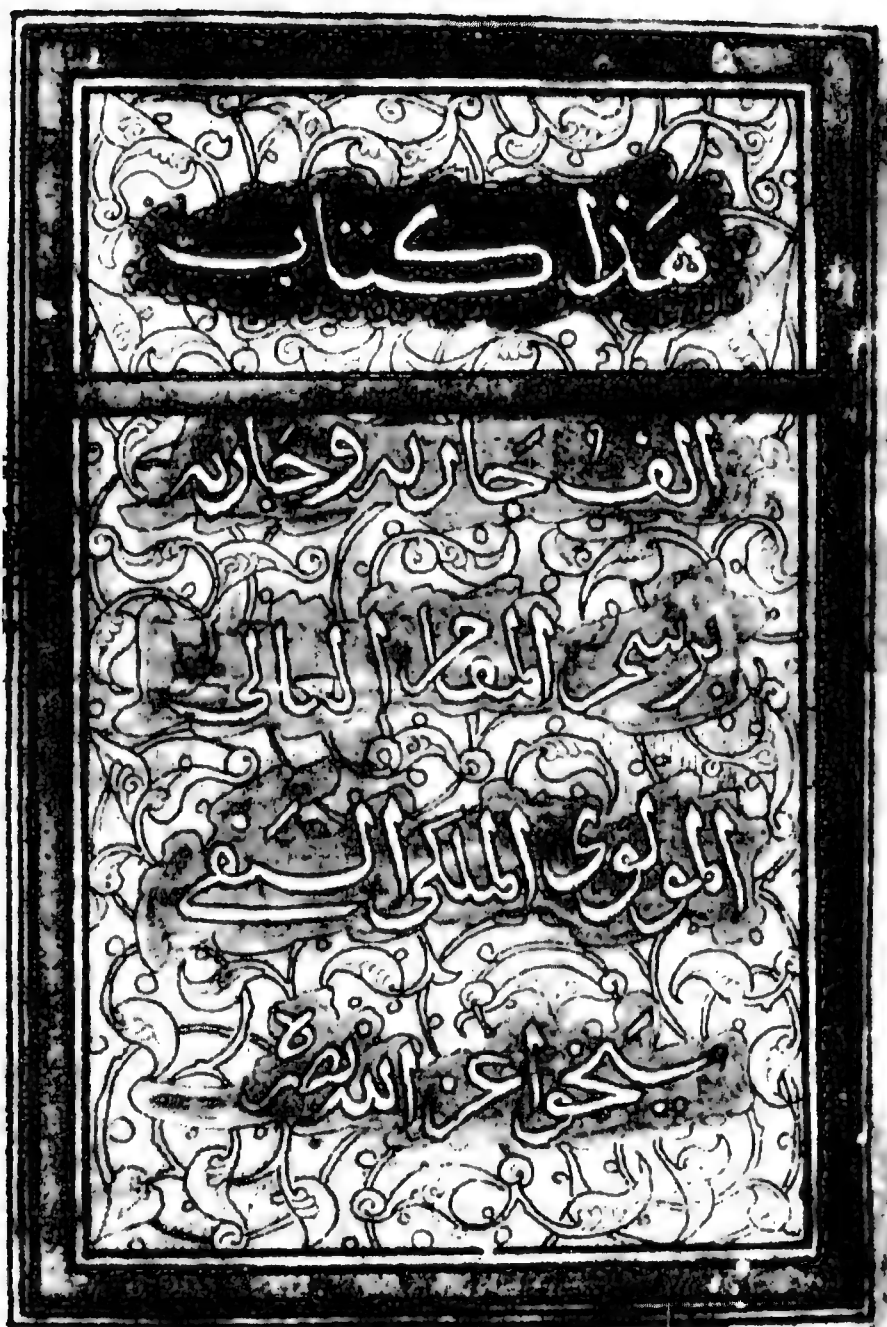 هَذا كتاب
الف جاريه وجاريه
برسم المقر العالى
المولوى الملكى السيفى
اعز الله نصرته